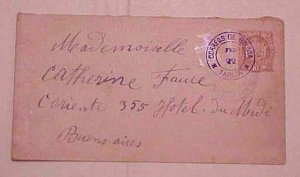 Mademoiselle
Catherine Faure
Coriente 355 Hotel du Midi
Buenos aires
CORREOS DE
TARIJA